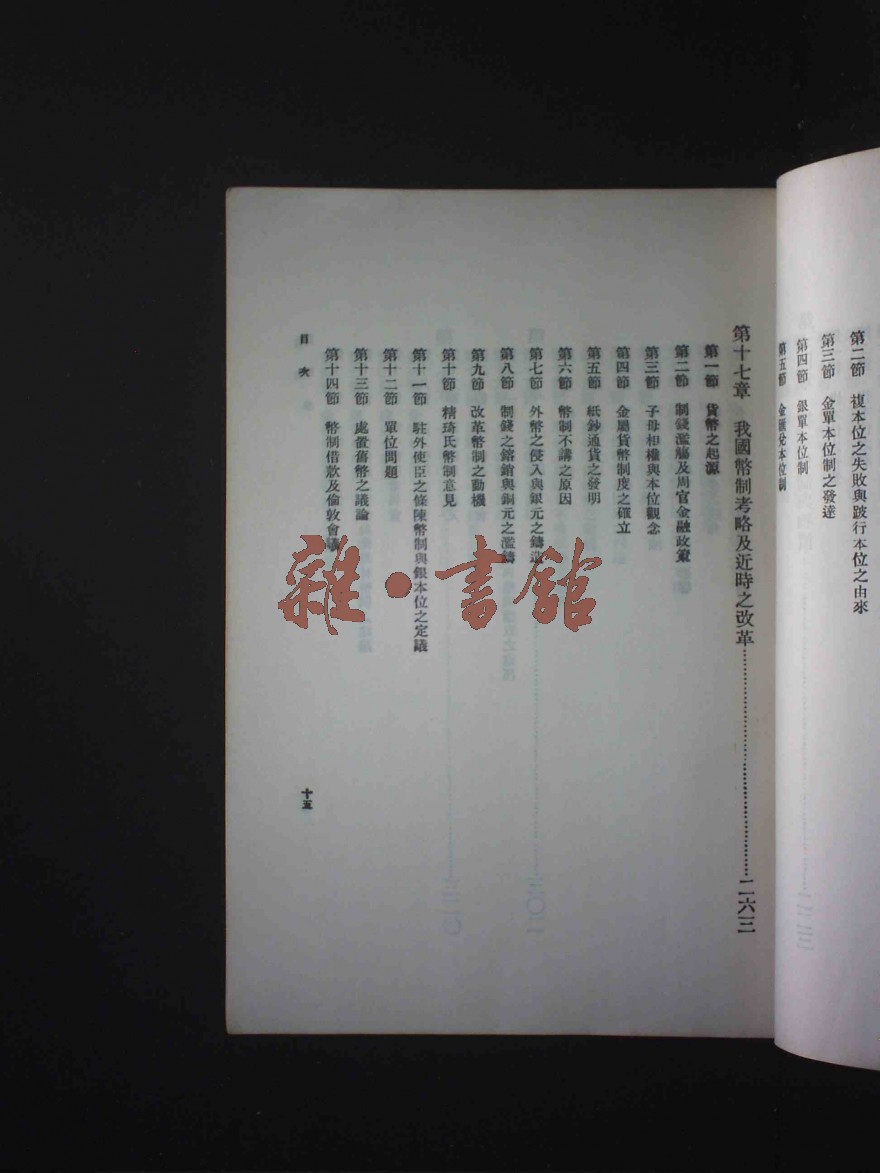 第二節 複本位之失敗與跛行本位之由來
第三節 金單本位制之發達
第四節 銀單本位制
第五節 金匯兌本位制
第十七章 我國幣制考略及近時之改革……二六三
第一節 貨幣之起源
第二節 制錢濫觴及周官金融政策
第三節 子母相權與本位觀念
第四節 金屬貨幣制度之確立
第五節 紙鈔通貨之發明
第六節 幣制不講之原因
第七節 外幣之侵入與銀元之鑄造
第八節 制錢之鎔銷與銅元之濫鑄
第九節 改革幣制之動機
第十節 精琦氏幣制意見
第十一節 駐外使臣之條陳幣制與銀本位之定議
第十二節 單位問題
第十三節 處置舊幣之議論
第十四節 幣制借款及倫敦會議
目次
十五
雜·書館